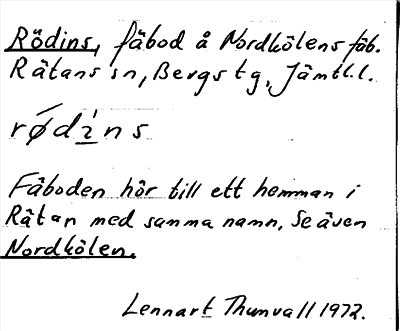 Rödins, fäbod å Nordkölens fäb.
Rätans sn, Bergs tg, Jämtl. l.
rǿdi̱ns
Fäboden hör till ett hemman i
Rätan med samma namn. Se även
Nordkölen.
Lennart Thunvall 1972.